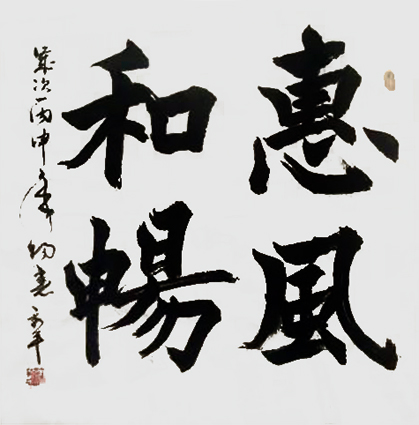 惠風
和暢
歲次丙申年